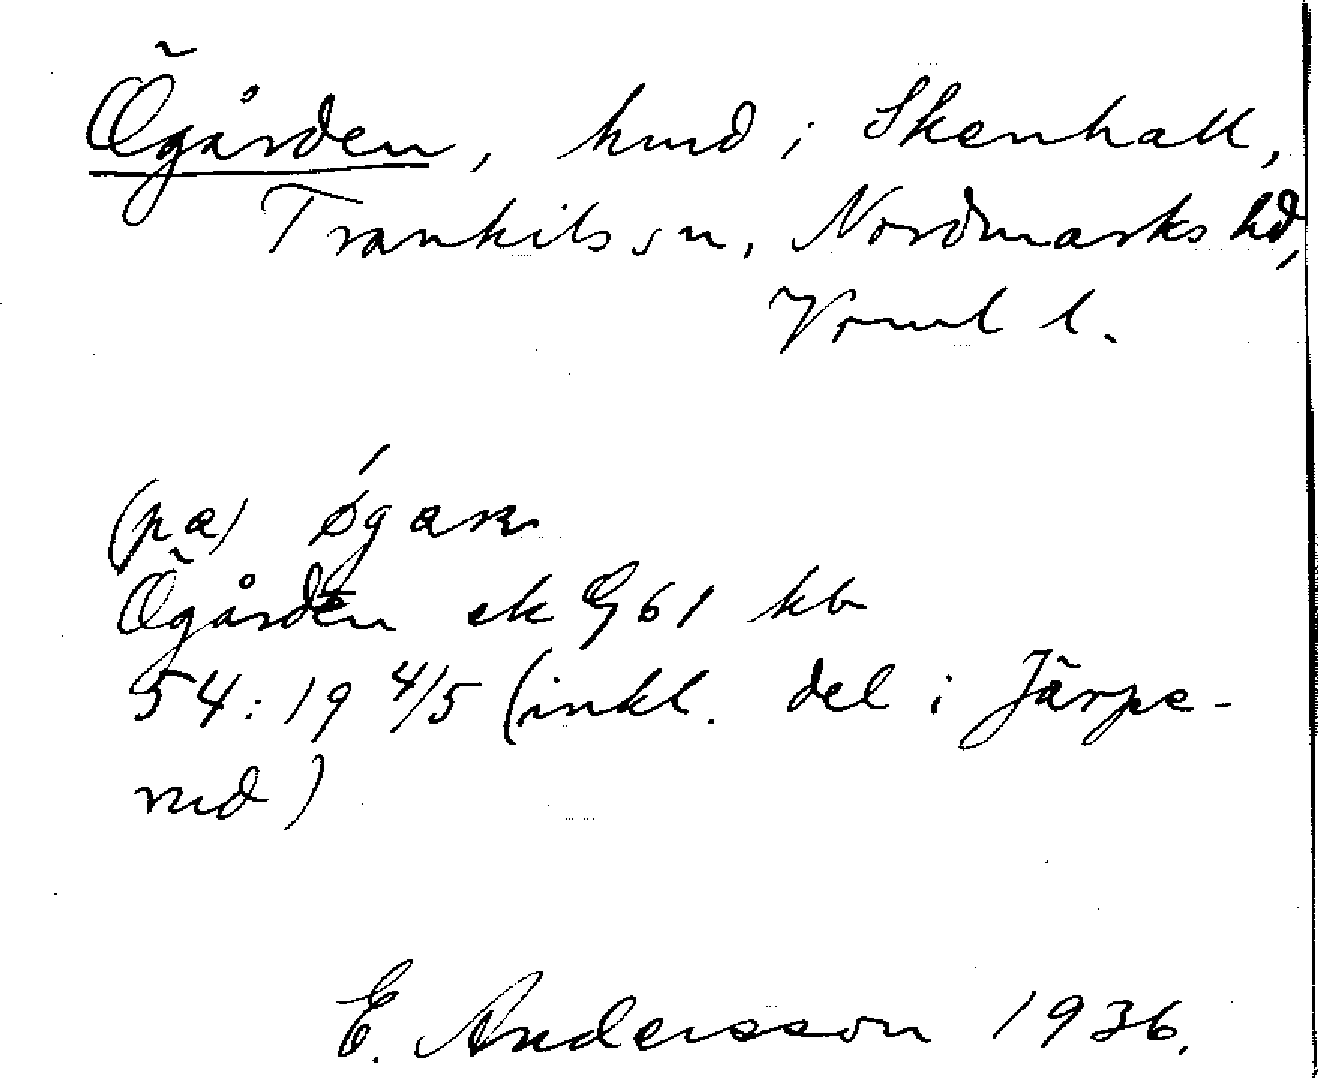 Ögården, hmd i Skenhall,
Trankils sn, Nordmarks hd,
Värml l.
(pa) øgarn
Ögården ek G61 kb
54:19 4/5 (inkl. del i Järpe-
rud)
E. Andersson 1936.